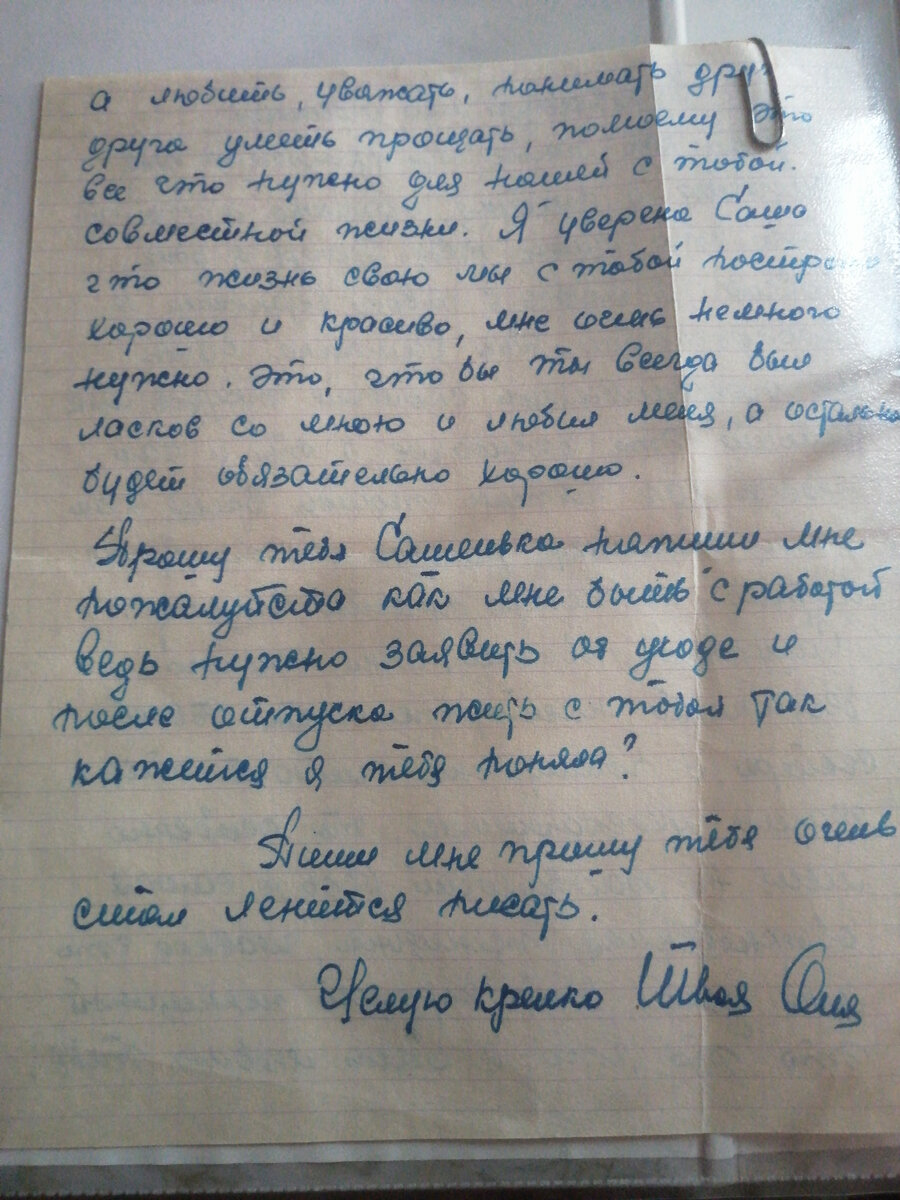 а любить, уважать, понимать друг
друга уметь прощать, помоему это
все что нужно для нашей с тобой.
совместной жизни. Я уверена Саша
что жизнь свою мы с тобой построим
хорошо и красиво, мне очень немного
нужно. Это, что бы ты всегда был
ласков со мною и любил меня, а остально
будет обязательно хорошо.
Прошу тебя Сашенька напиши мне
пожалуйста как мне быть с работой
ведь нужно заявить об уходе и
после отпуска жить с тобой так
кажется я тебя поняла?
Пиши мне прошу тебя очень
стал ленится писать.
Целую крепко Твоя Оля